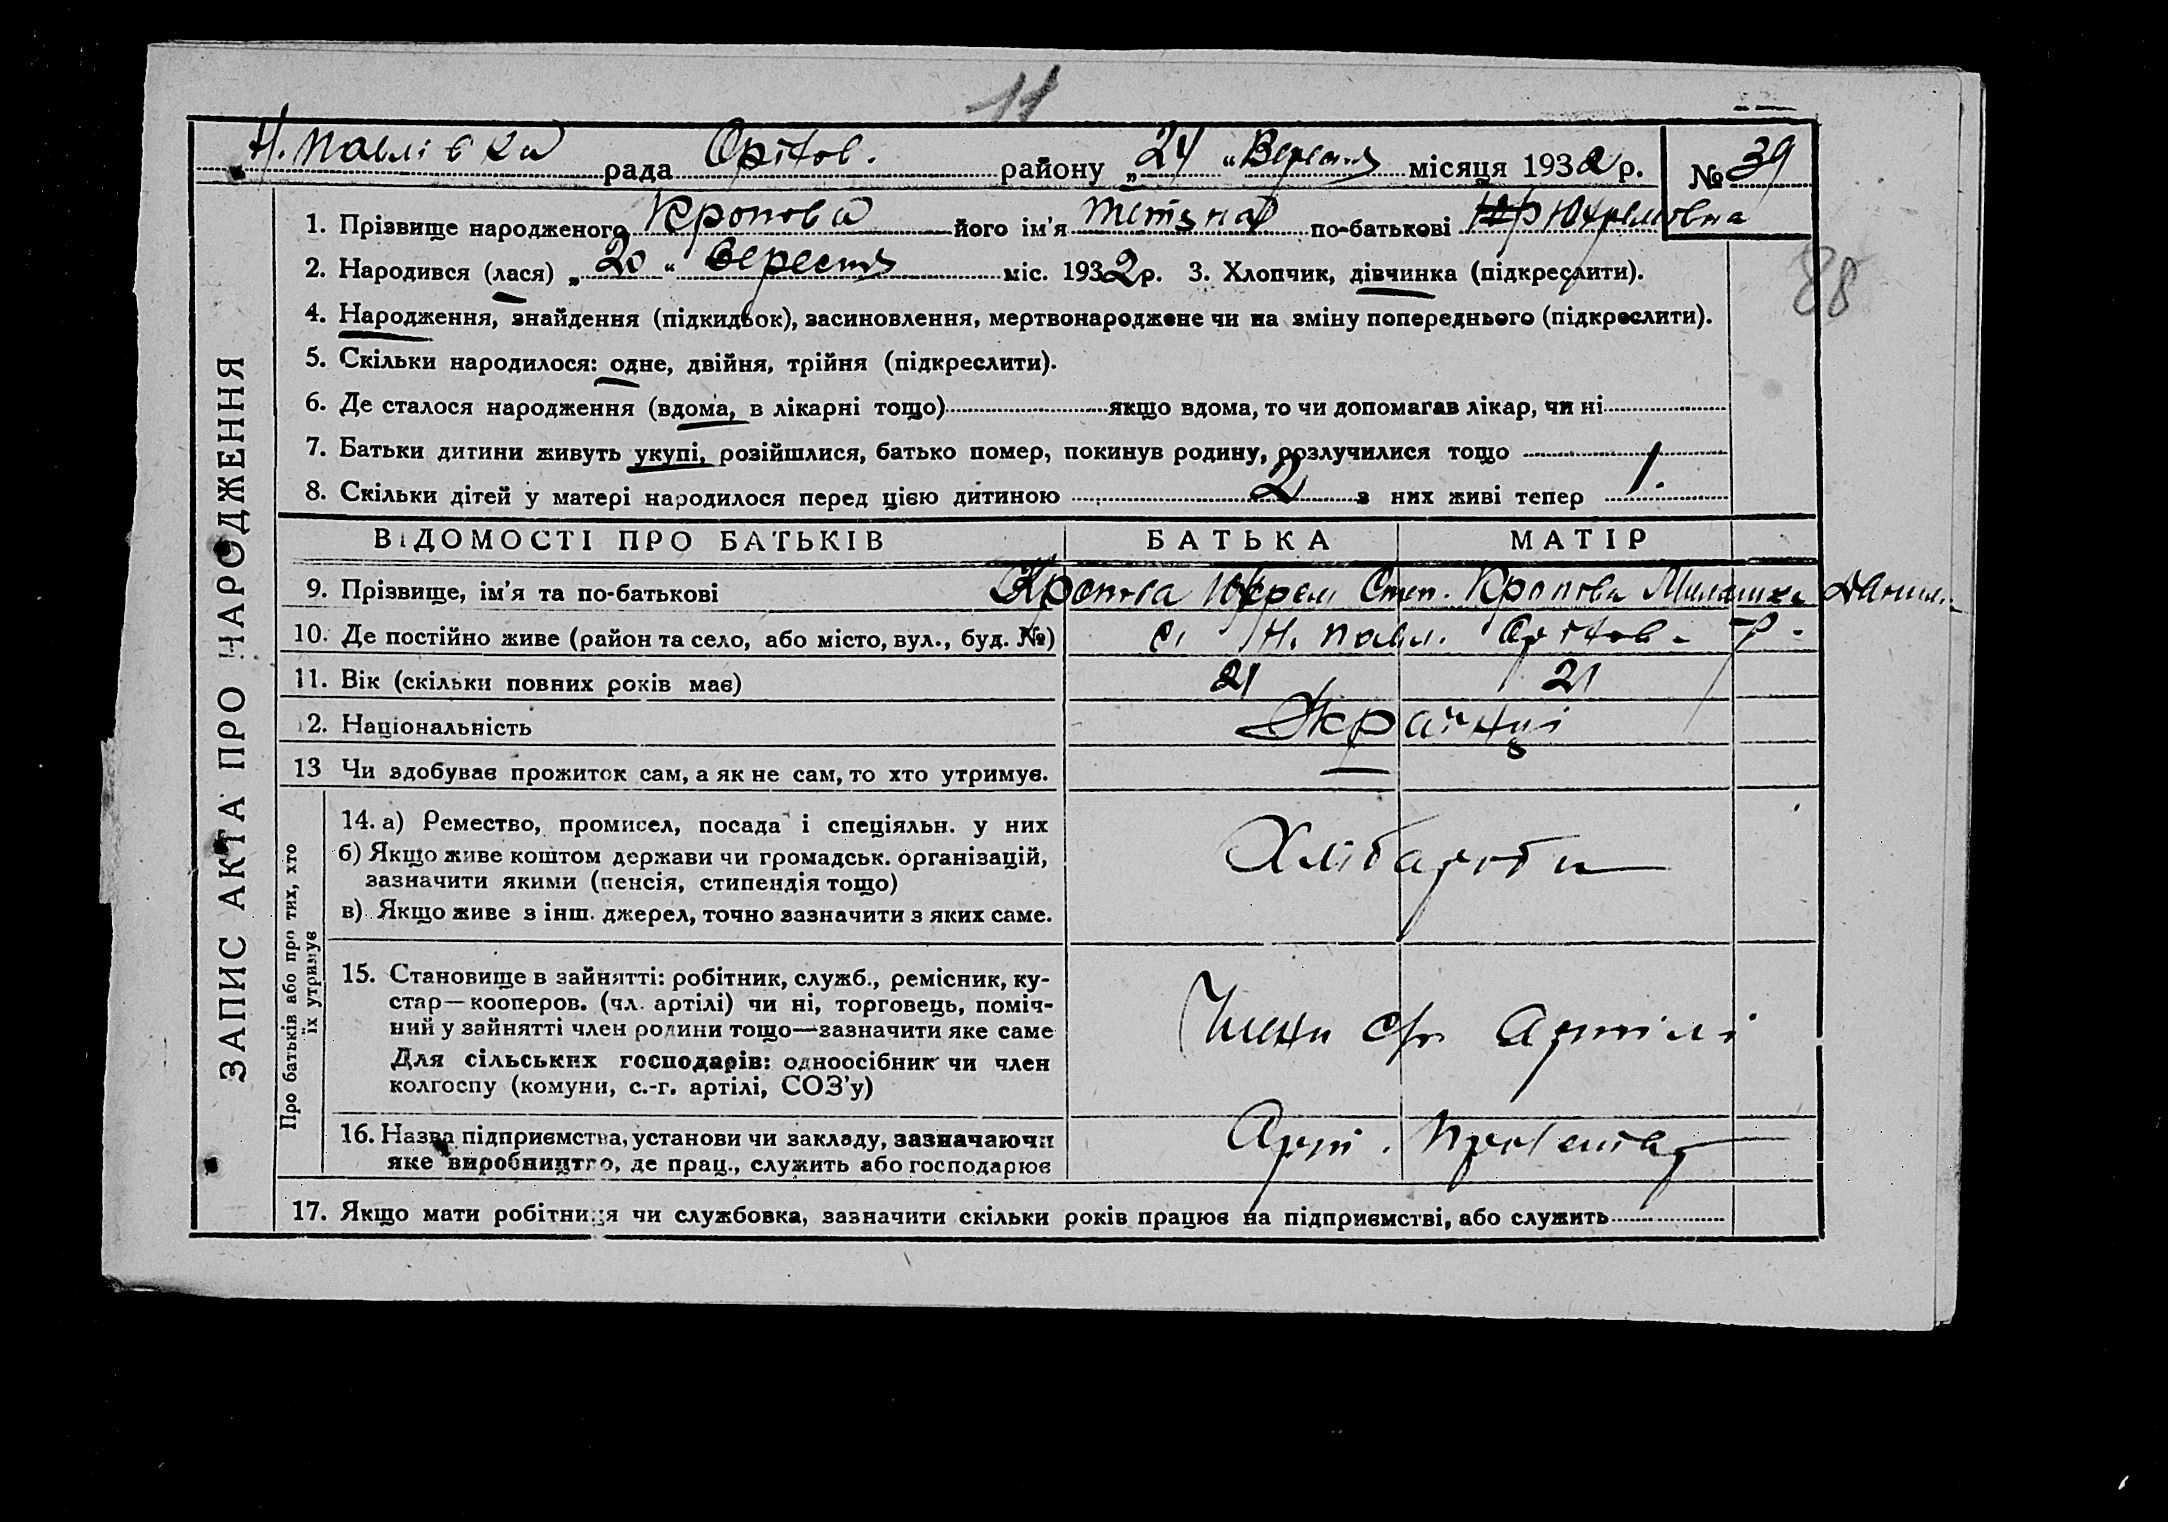 11
Н. Павлівка рада Оріхов. району „24 “ Вересня місяця 1932 р. № 39
1. Прізвище народженого Кропова його ім'я Тетяна по-батькові Юхремовна
2. Народився (лася) „ 20 “ вересня міс. 1932 р. 3. Хлопчик, дівчинка (підкреслити).
88
4. Народження, знайдення (підкидьок), засиновлення, мертвонароджене чи на зміну попереднього (підкреслити).
5. Скільки народилося: одне, двійня, трійня (підкреслити).
6. Де сталося народження (вдома, в лікарні тощо) якщо вдома, то чи допомагав лікар, чи ні
7. Батьки дитини живуть укупі, розійшлися, батько помер, покинув родину, розлучилися тощо
8. Скільки дітей у матері народилося перед цією дитиною 2 з них живі тепер 1.
ЗАПИС АКТА ПРО НАРОДЖЕННЯ
ВІДОМОСТІ ПРО БАТЬКІВ БАТЬКА МАТІР
9. Прізвище, ім'я та по-батькові Кропова Юхрем Степ. Кропова Милашка Данил.
10. Де постійно живе (район та село, або місто, вул., буд. №) с. Н. Павл. Оріхов. р.
11. Вік (скільки повних років має) 21 21
12. Національність Українці
13 Чи здобуває прожиток сам, а як не сам, то хто утримує. —
Про батьків або про тих, хто
їх утримує
14. а) Ремество, промисел, посада і спеціяльн. у них
б) Якщо живе коштом держави чи громадськ. організацій,
зазначити якими (пенсія, стипендія тощо)
в) Якщо живе з інш. джерел, точно зазначити з яких саме.
Хлібароби
15. Становище в зайнятті: робітник, служб., ремісник, ку-
стар—кооперов. (чл. артілі) чи ні, торговець, поміч-
ний у зайнятті член родини тощо—зазначити яке саме
Для сільських господарів: одноосібник чи член
колгоспу (комуни, с.-г. артілі, СОЗ'у)
Члени с/г Артілі
16. Назва підприємства, установи чи закладу, зазначаючи
яке виробництво, де прац., служить або господарює
Арт.
17. Якщо мати робітниця чи службовка, зазначити скільки років працює на підприємстві, або служить